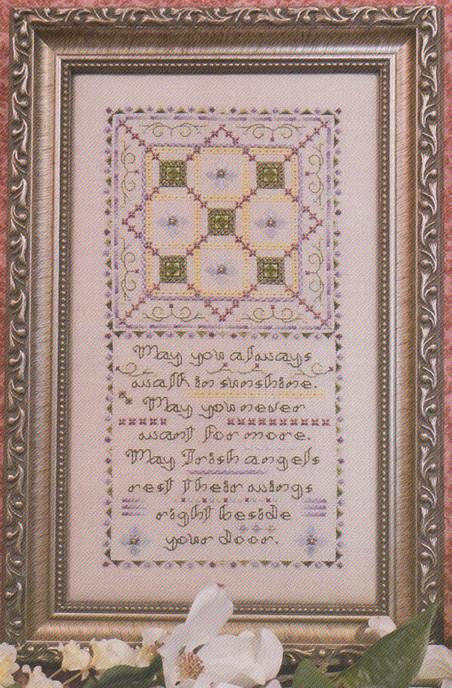 May you always
walk in sunshine.
May you never
want for more.
May Irish angels
rest their wings
right beside
your door.